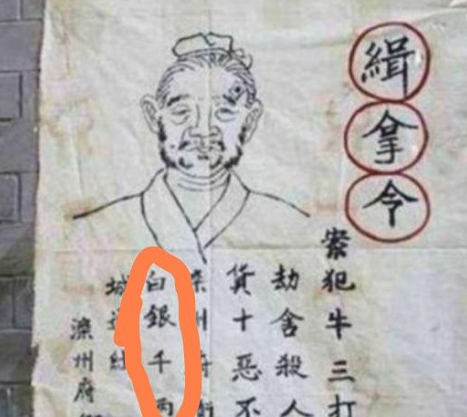 緝拿令
案犯牛三打
劫舍殺人
貨十惡不
灤州府衙
白銀千兩
城邊
灤州府